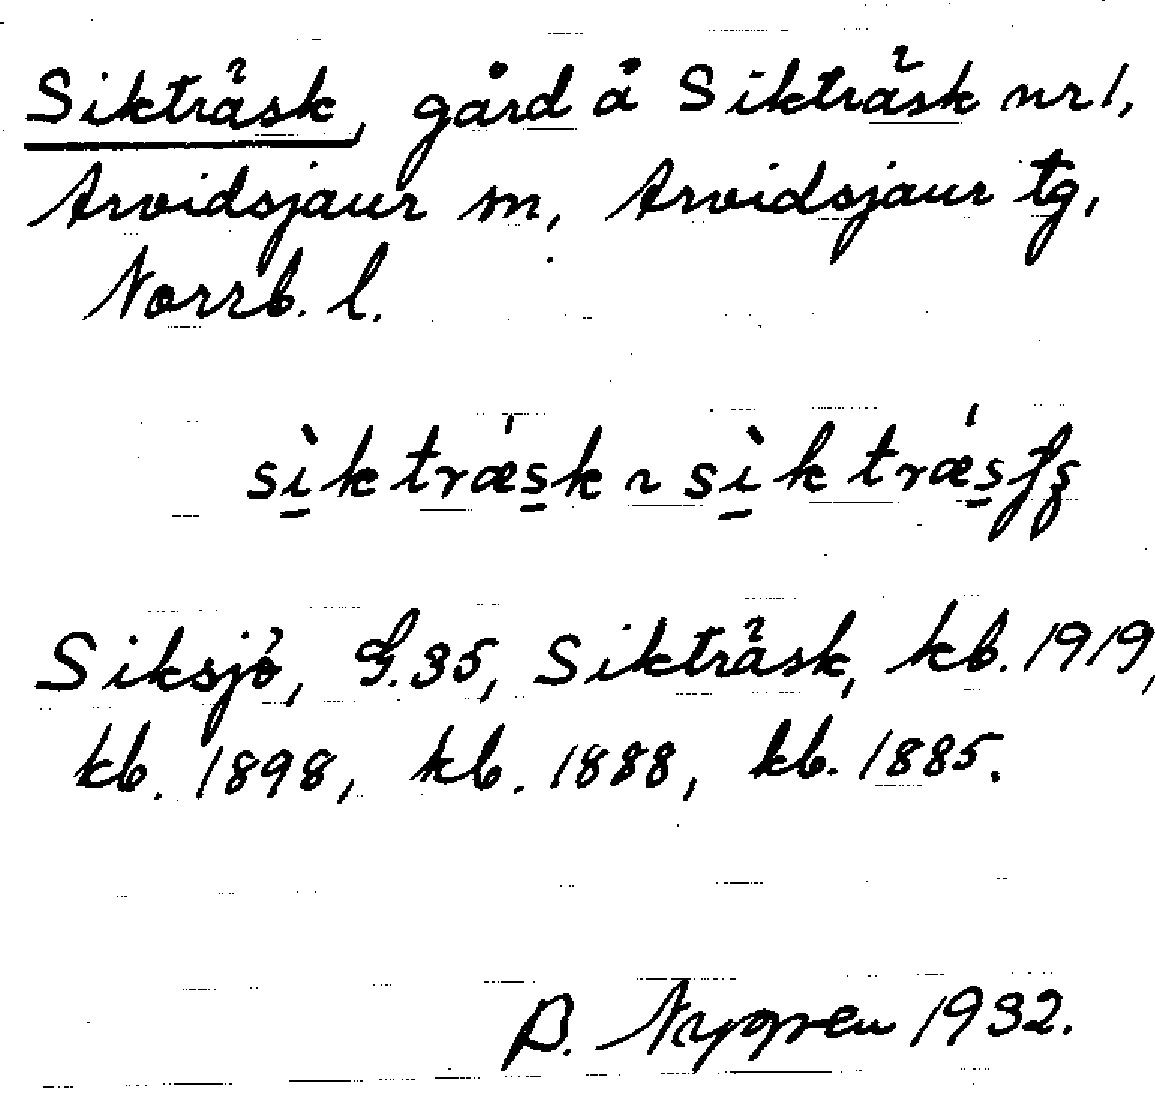 Sikträsk, gård å Sikträsk nr 1,
Arvidsjaur sn, Arvidsjaur tg,
Norrb. l.
sìktræ̍sk ~ sìktræ̍s
Siksjö, G.35, Sikträsk, kb. 1919,
kb. 1898, kb. 1888, kb. 1885.
B. Nygren 1932.